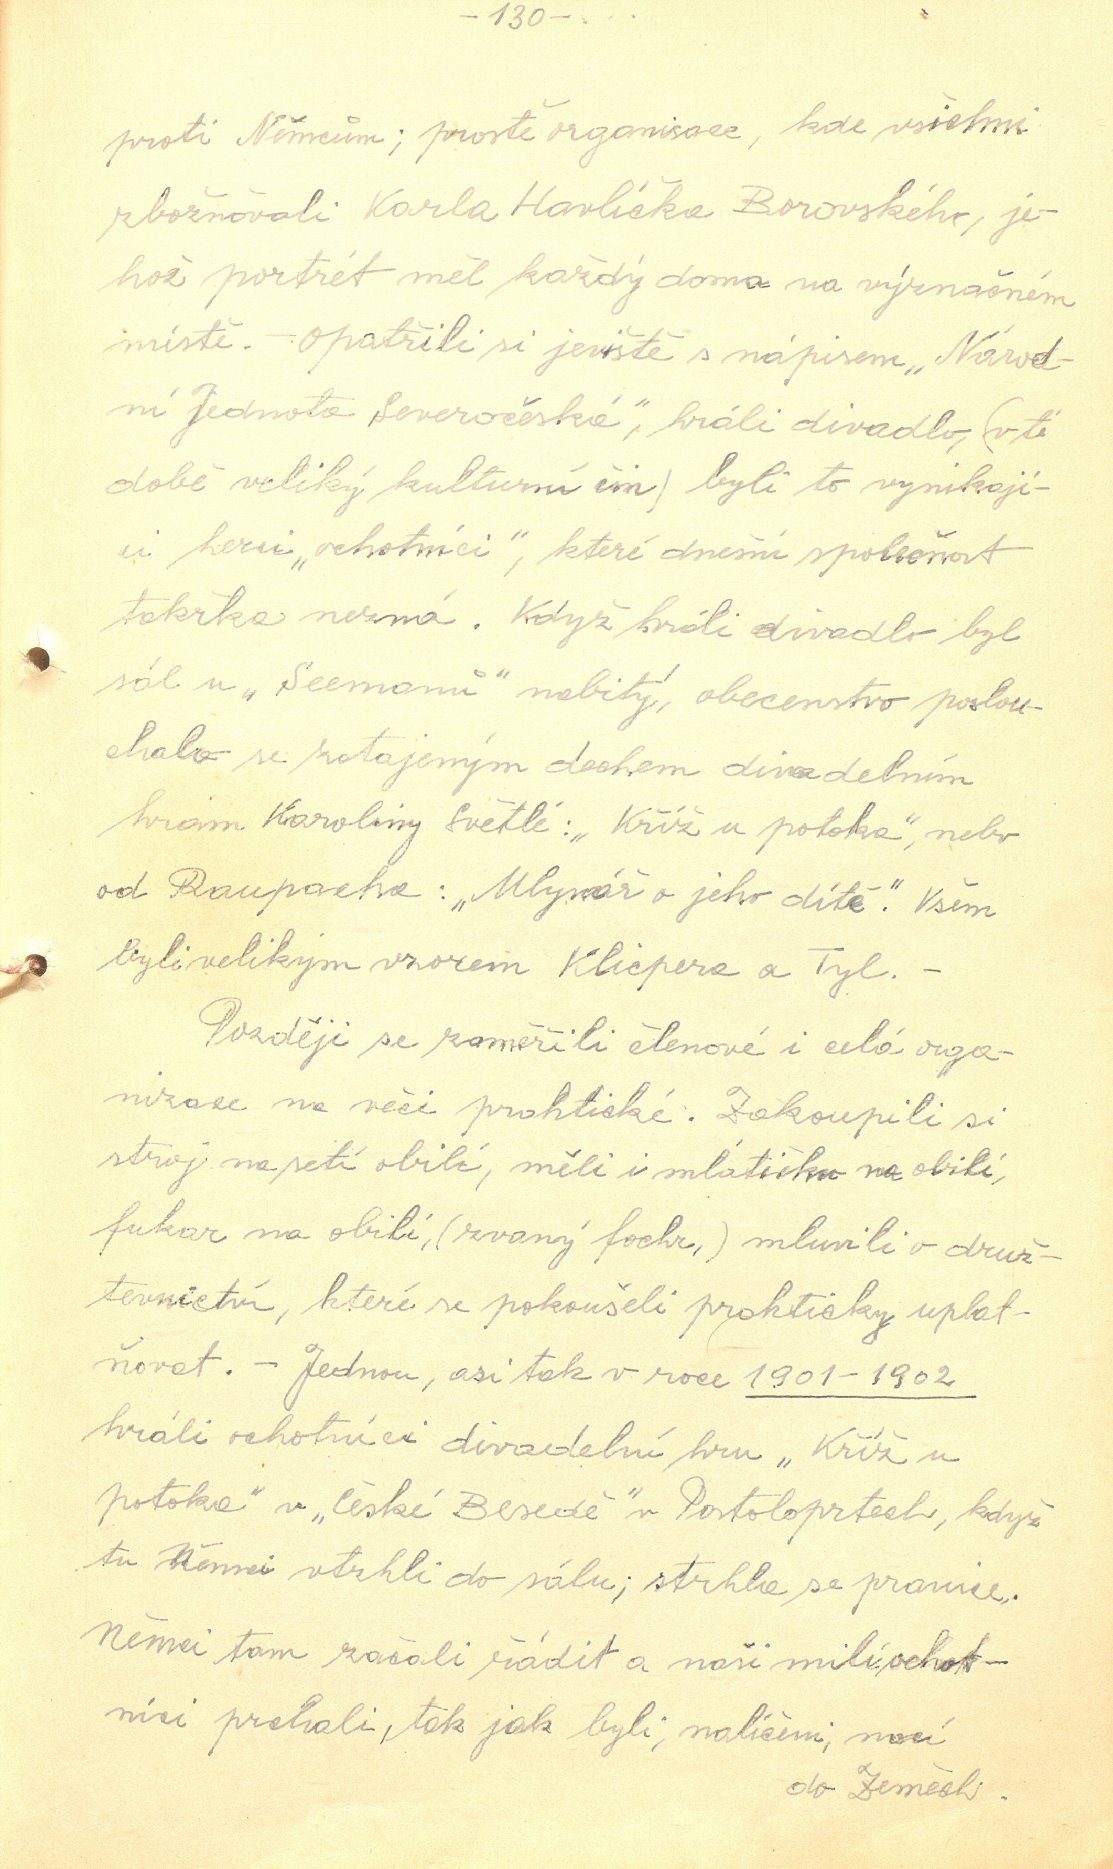 - 130 -
proti Němcům; prostě organisace, kde všichni
zbožňovali Karla Havlíčka Borovského, je-
hož portrét měl každý doma na význačném
místě. - Opatřili si jeviště s nápisem „Národ-
ní Jednota Severočeská“, hráli divadlo, (v té
době veliký kulturní čin) byli to vynikají-
ci herci „ochotníci“, které dnešní společnost
takřka nezná. Když hráli divadlo byl
sál u „Seemanů“ nabitý, obecenstvo poslou-
chalo se zatajeným dechem divadelním
hrám Karoliny Světlé: „Kříž u potoka“, nebo
od Raupacha: „Mlynář a jeho dítě“. Všem
byli velikým vzorem Klicpera a Tyl. -
Později se zaměřili členové i celá orga-
nizace na věci praktické. Zakoupili si
stroj na setí obilí, měli i mlátičku na obilí,
fukar na obilí, (zvaný fochr,) mluvili o druž-
tevnictví, které se pokoušeli prakticky uplat-
ňovat. - Jednou, asi tak v roce 1901 - 1902
hráli ochotníci divadelní hru „Kříž u
potoka“ v „České Besedě“ v Postoloprtech, když
tu Němci vtrhli do sálu; strhla se pranice.
Němci tam začali řádit a naši milí ochot-
níci prchali, tak jak byli, nalíčeni, nocí
do Zeměch.